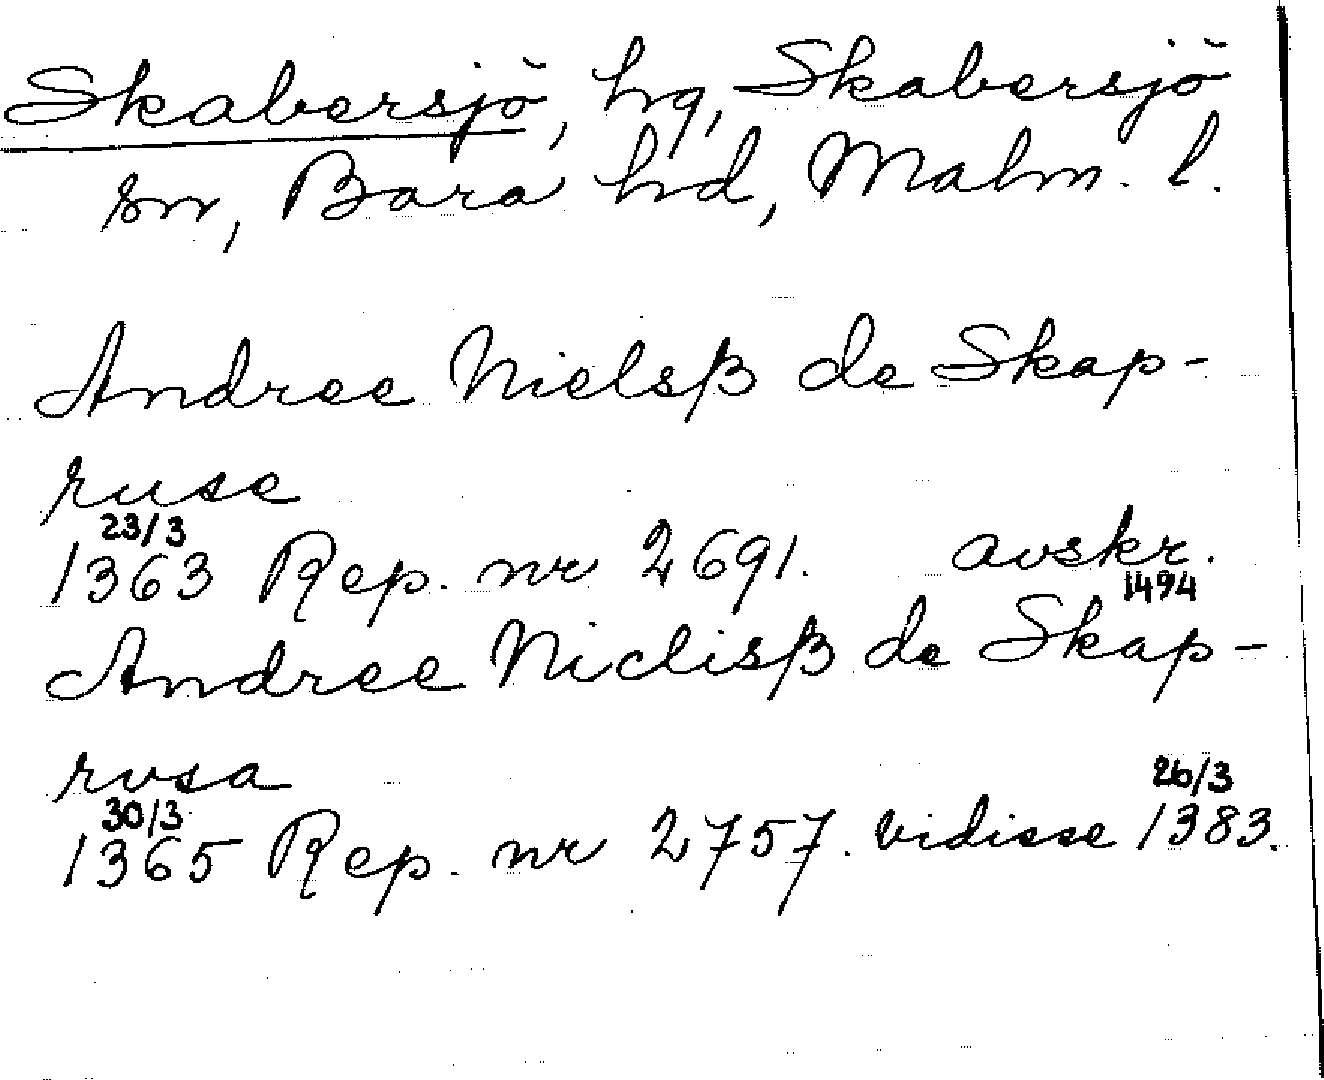 Skabersjö, hg, Skabersjö
sn, Bara hd, Malm. l.
Andree Nielsß de Skap-
ruse
23/3
1363 Rep. nr 2691. avskr.
1494
Andree Niclisß de Skap-
rvsa
30/3 26/3
1365 Rep. nr 2757. vidisse 1383.